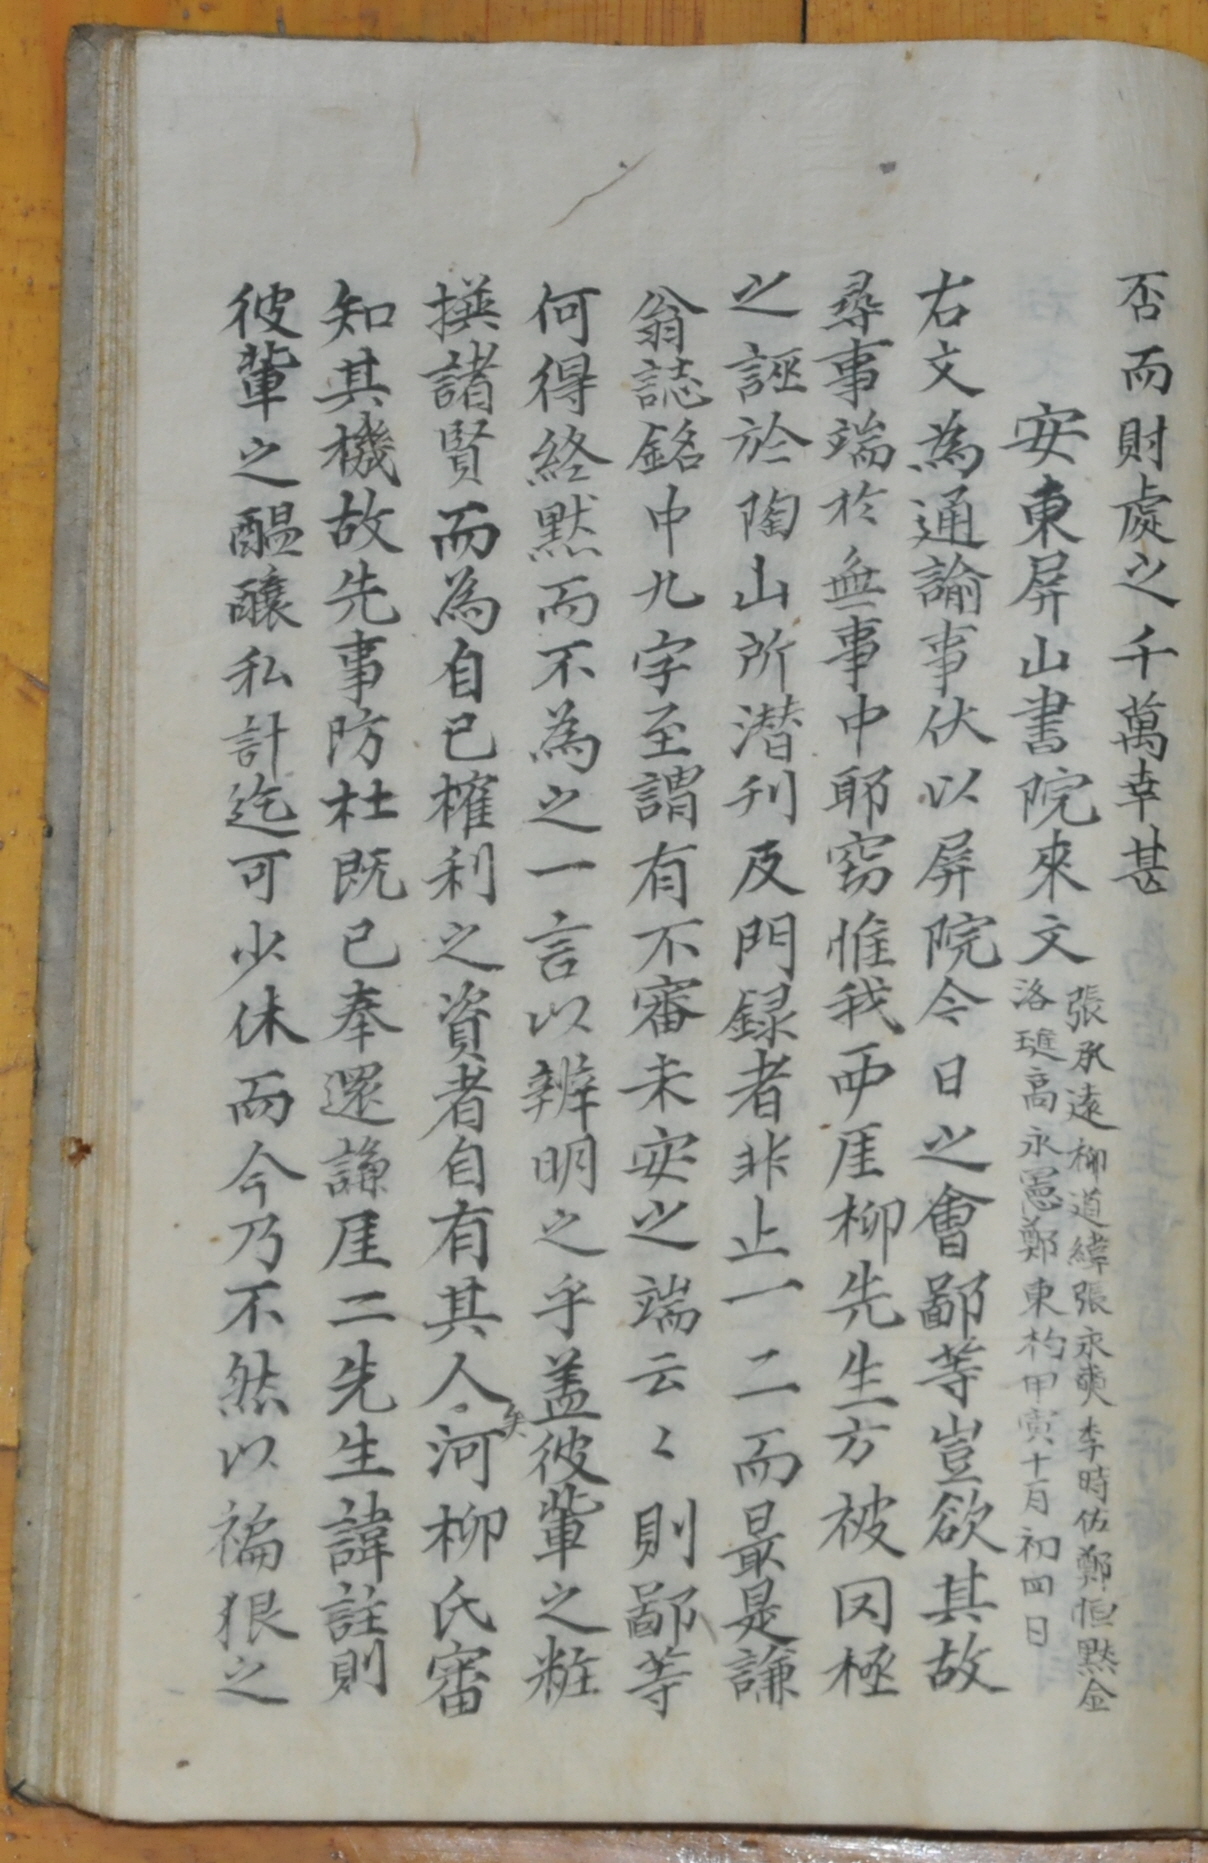 否而財處之千萬幸甚
安東屏山書院來文
張承遠柳道緯張永奭李時佐鄭恒黙金
洛璡高永憲鄭東杓甲寅十月初四日
右文為通諭事伏以屏院今日之會鄙等豈欲其故
尋事端於無事中耶窃惟我西厓柳先生方被罔極
之誣於陶山所潜刊及門録者非止一二而最是謙
翁誌銘中九字至謂有不審未安之端云〻則鄙等
何得終黙而不為之一言以辨明之乎盖彼軰之粧
撰諸賢而為自已榷利之資者自有其人矣河柳氏審
知其機故先事防杜既已奉還謙厓二先生諱註則
彼軰之醞釀私計迄可少休而今乃不然以褊狠之